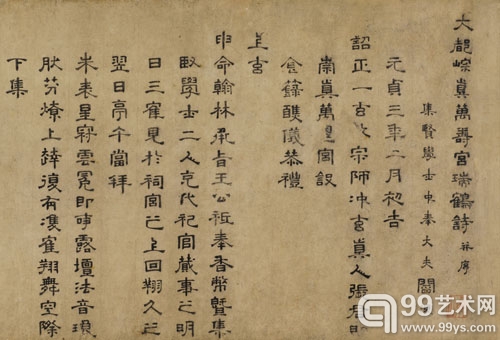 大都崇真萬壽宮瑞鶴詩并序
集賢學士中奉大夫閻
元貞三年二月初吉
詔正一宗師沖玄真人張
崇真萬壽宮設
金籙醮儀恭禮
上玄
申命翰林承旨王公祗奉香幣暨集
賢學士二人充代祀官蕆事之明
日三鶴見於祠宮之上回翔久之
翌日亭午當拜
朱表星冠雲冕即事露壇法音環
芬燎上達復有雙鶴翔舞空際
下集
99艺术网
www.99ys.com